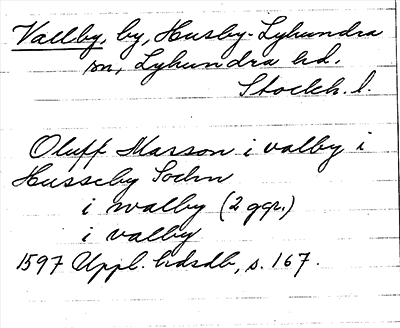 Vallby, by, Husby-Lyhundra
sn, Lyhundra hd.
Stockh. l.
Oluff Marson i valby i
Husseby Sochn
i walby (2 ggr.)
i valby
1597 Uppl. hdsdb, s. 167.